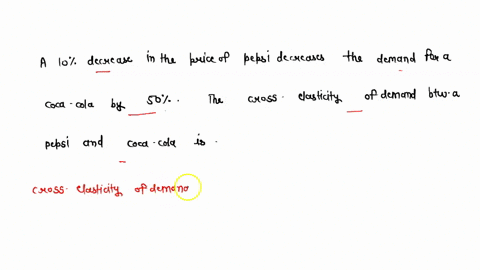 A 10% decrease in the price of pepsi decreases the demand for a
coca-cola by 50%. The cross-elasticity of demand btw.a
pepsi and coca-cola is.
cross-elasticity of demand